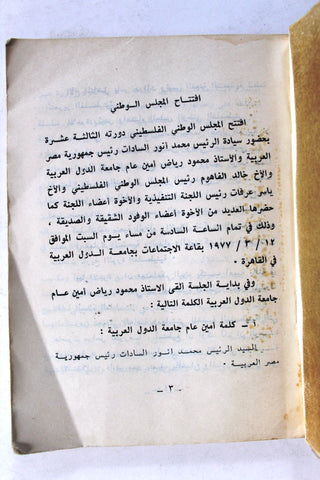 افتتاح المجلس الوطني
افتتح المجلس الوطني الفلسطيني دورته الثالثة عشرة
بحضور سيادة الرئيس محمد أنور السادات رئيس جمهورية مصر
العربية والأستاذ محمود رياض أمين عام جامعة الدول العربية
والأخ خالد الفاهوم رئيس المجلس الوطني الفلسطيني والأخ
ياسر عرفات رئيس اللجنة التنفيذية والأخوة أعضاء اللجنة كما
حضرها العديد من الأخوة أعضاء الوفود الشقيقة والصديقة ،
وذلك في تمام الساعة السادسة من مساء يوم السبت الموافق
١٢ / ٣ / ١٩٧٧ بقاعة الاجتماعات بجامعة الدول العربية
في القاهرة .
وفي بداية الجلسة القى الاستاذ محمود رياض أمين عام
جامعة الدول العربية الكلمة التالية :
أ ــ كلمة أمين عام جامعة الدول العربية :
السيد الرئيس محمد انور السادات رئيس جمهورية
مصر العربية .
ــ ٣ ــ